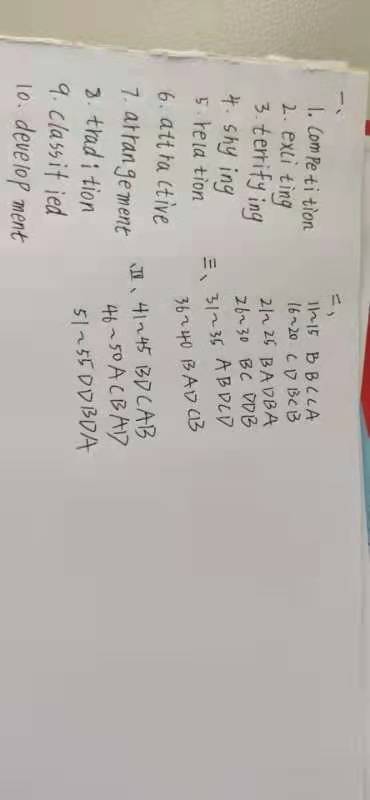 一、
1. competition
2. exciting
3. terrifying
4. shying
5. relation
6. attractive
7. arrangement
8. tradition
9. classified
10. development
二、
11~15 BBCCA
16~20 CDBCB
21~25 BADBA
26~30 BCDDB
三、
31~35 ABDCD
36~40 BADCB
四、41~45 BDCAB
46~50 ACBAD
51~55 DDBDA